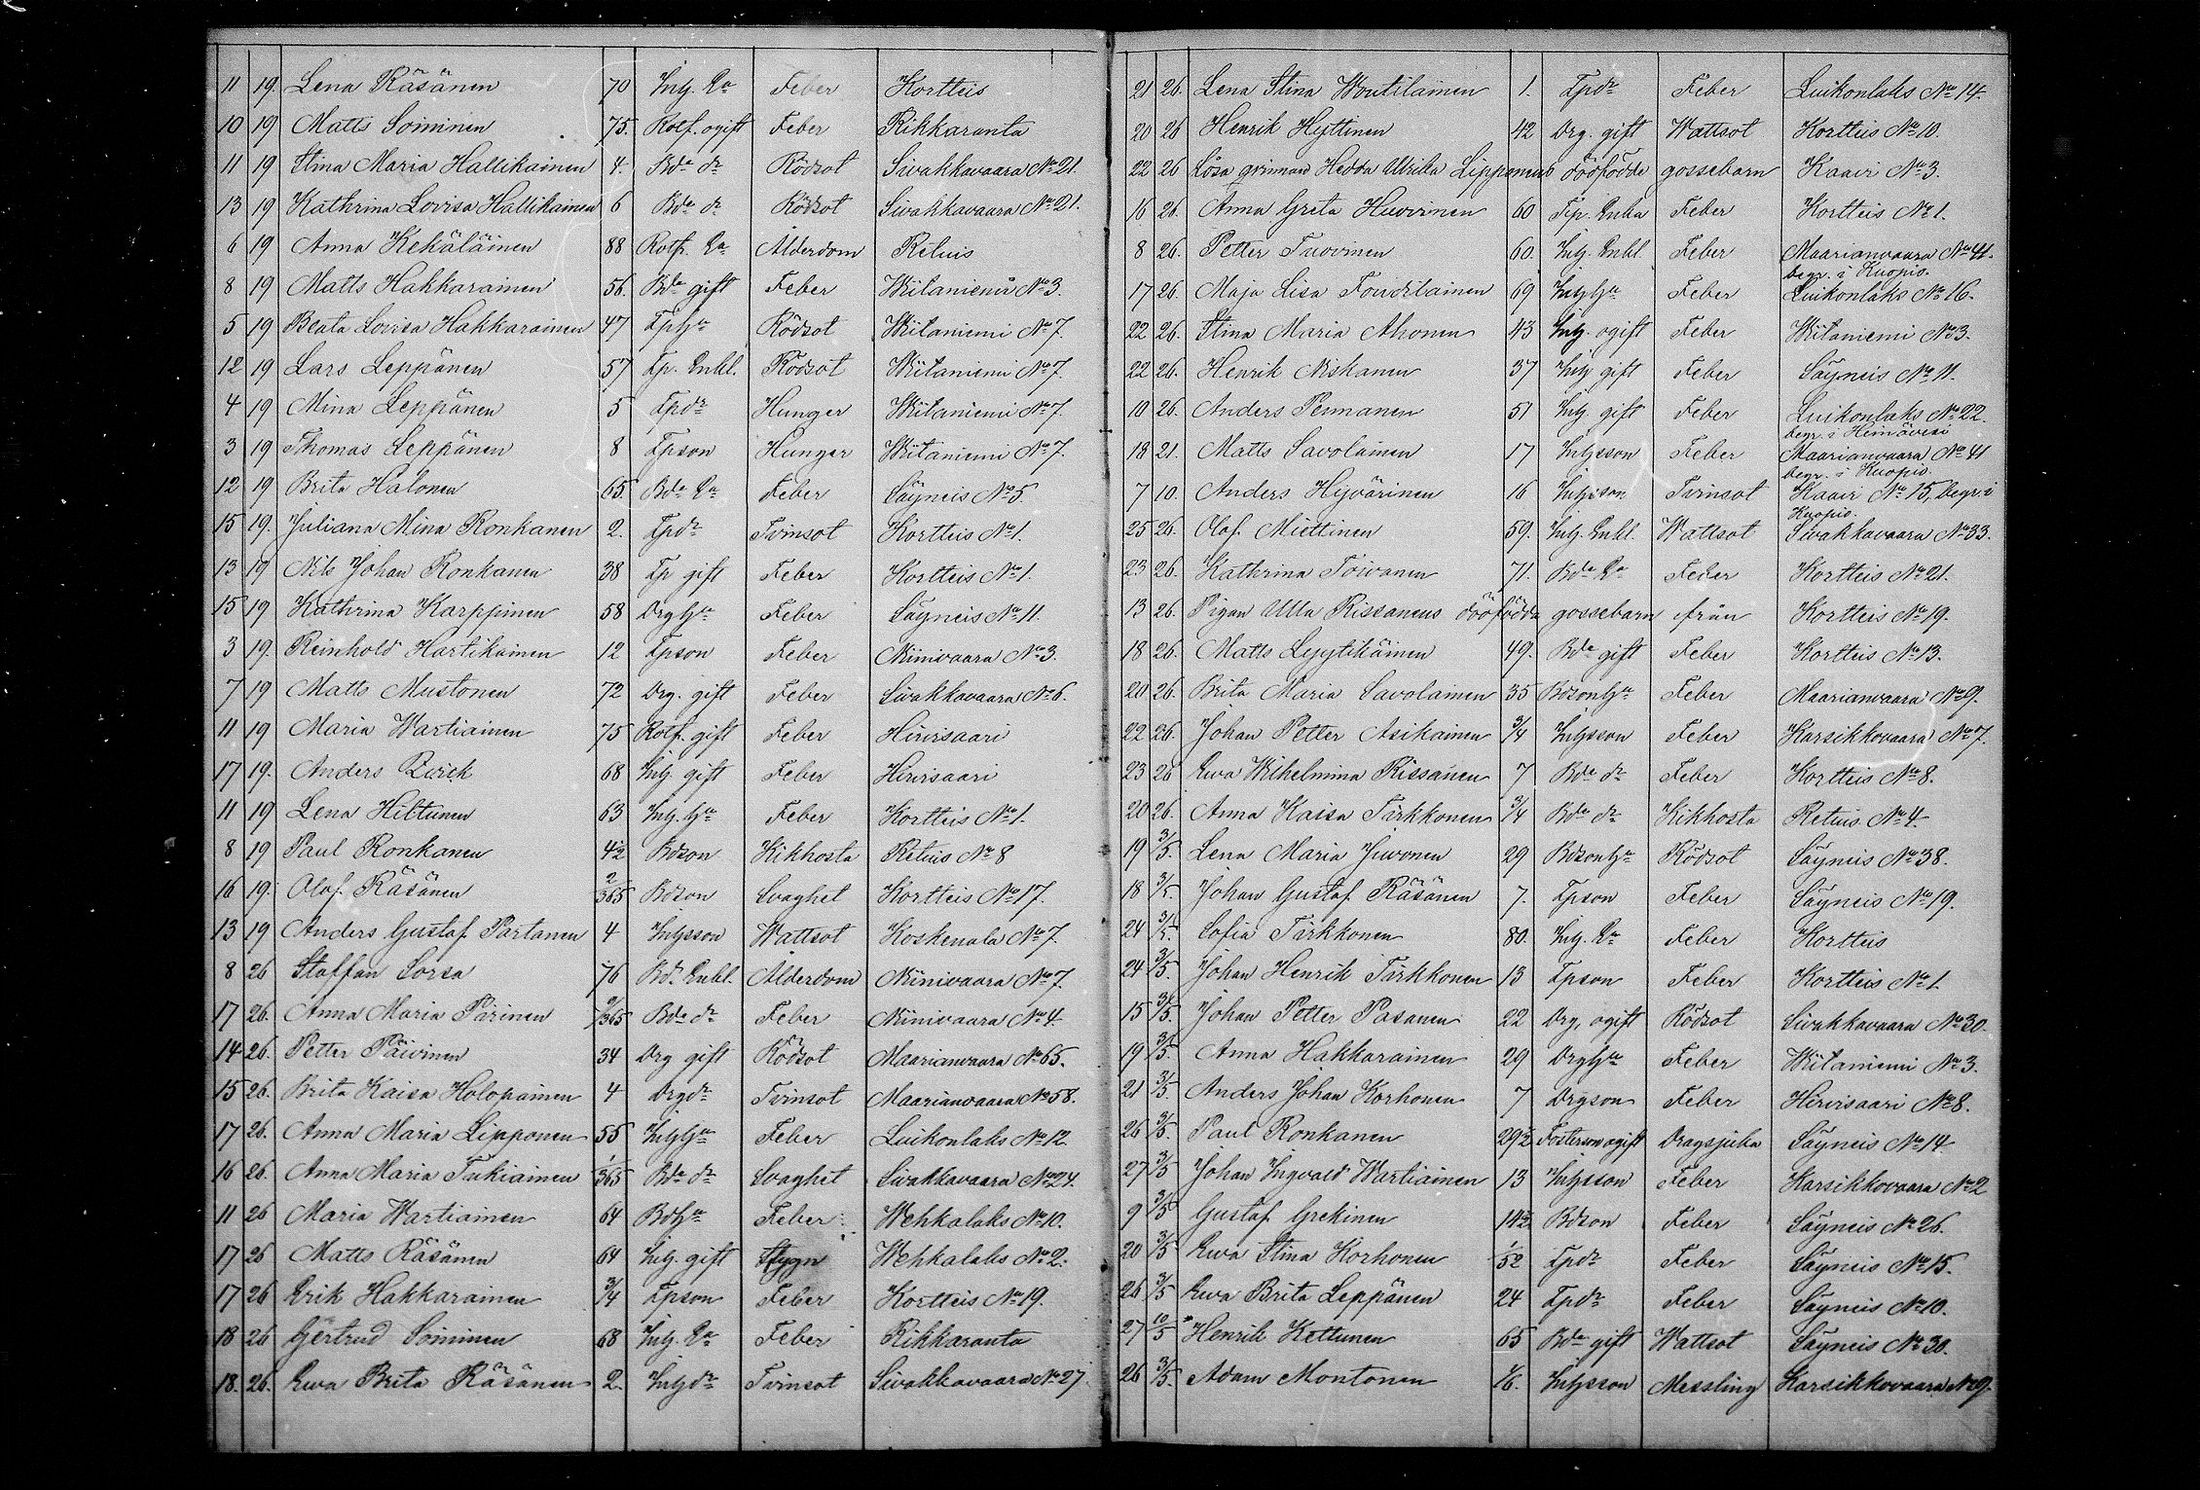 11 19. Lena Räsänen 70 Inh. Ea Feber Kortteis
10 19 Matts Soininen 75. Rotf. ogift Feber Rikkaranta
11 19 Stina Maria Hallikainen 4. Bde dr Rödsot Sivakkavaara No 21.
13 19 Kathrina Lovisa Hallikainen 6 Bde dr Rödsot Sivakkavaara No 21.
6 19 Anna Kekäläinen 88 Rotf. Ea Ålderdom Retuis
8 19 Matts Hakkarainen 56. Bde gift Feber Wiitaniemi No 3.
5 19 Beata Lovisa Hakkarainen 47 Tphu Rödsot Wiitaniemi No 7.
12 19 Lars Leppänen 57 Tp. Enkl. Rödsot Wiitaniemi No 7.
4 19 Mina Leppänen 5 Tpdr Hunger Wiitaniemi No 7.
3 19 Thomas Leppänen 8 Tpson Hunger Wiitaniemi No 7.
12 19 Brita Halonen 65. Bde Ea Feber Säyneis No 5
15 19. Juliana Mina Ronkanen 2. Tpdr Tvinsot Kortteis No 1.
13 19 Nils Johan Ronkanen 38 Tp gift Feber Kortteis No 1.
15 19 Kathrina Karppinen 58 Drghu Feber Säyneis No 11.
3 19. Reinhold Hartikainen 12 Tpson Feber Niinivaara No 3.
7 19 Matts Mustonen 72 Drg. gift Feber Sivakkavaara No 6.
11 19 Maria Wartiainen 75 Rotf. gift Feber Hirvisaari
17 19. Anders Qvick 68 Inh. gift Feber Hirvisaari
11 19 Lena Hiltunen 63 Inh. hu Feber Kortteis No 1.
8 19 Paul Ronkanen 4½ Bdson Kikhosta Retuis No 8
16 19. Olof Räsänen 2/365 Bdson Svaghet Kortteis No 17.
13 19 Anders Gustaf Partanen 4 Inhsson Wattsot Koskenala No 7.
8 26 Staffan Sorsa 76 Bde Enkl. Ålderdom Niinivaara No 7.
17 26. Anna Maria Pärinen 9/365 Bde dr Feber Niinivaara No 4.
14 26. Petter Päivinen 34 Drg gift Rödsot Maarianvaara No 65.
15 26. Brita Kaisa Holopainen 4 Drgdr Tvinsot Maarianvaara No 58.
17 26. Anna Maria Lipponen 55 Inhhu Feber Luikonlaks No 12
16 26. Anna Maria Tukiainen 1/365 Bde dr Svaghet Sivakkavaara No 24.
11 26 Maria Wartiainen 64 Bdhu Feber Wehkalaks No 10.
17 26 Matts Räsänen 64 Inh. gift Stygn Wehkalaks No 2.
17 26 Erik Hakkarainen 3/4 Tpson Feber Kortteis No 19.
18 26 Gertrud Soininen 68 Inh. Ea Feber Rikkaranta
18. 26. Ewa Brita Räsänen 2. Inhdr Tvinsot Sivakkavaara No 27
21 26. Lena Stina Woutilainen 1. Tpdr Feber Luikonlaks No 14.
20 26 Henrik Hyttinen 42 Drg. gift Wattsot Kortteis No 10.
22 26 Lösa qvinnan Hedda Ulrika Lipponens dödfödda gossebarn Kaavi No 3.
16 26. Anna Greta Huovinen 60 Tp. Enka Feber Kortteis No 1.
8 26. Petter Tuovinen 60. Inh. Enkl. Feber Maarianvaara No 41.
begr. i Kuopio.
17 26. Maja Lisa Toudilainen 69 Inhhu Feber Luikonlaks No 16.
22 26. Stina Maria Ahonen 43 Inh. ogift Feber Wiitaniemi No 3.
22 26. Henrik Niskanen 37 Inh gift Feber Säyneis No 11.
10 26. Anders Permanen 51 Inh. gift Feber Luikonlaks No 22.
begr. i Heinävesi
18 21. Matts Savolainen 17 Inhsson Feber Maarianvaara No 41
begr. i Kuopio.
7 10. Anders Hyvärinen 16 Inhsson Tvinsot Kaavi No 15, begr. i
Kuopio.
25 26. Olof Miettinen 59. Inh. Enkl. Wattsot Sivakkavaara No 33.
23 26. Kathrina Toivanen 71. Bde Ea Feber Kortteis No 21.
13 26. Pigan Ulla Rissanens dödfödda gossebarn från Kortteis No 19.
18 26. Matts Lyytikäinen 49. Bde gift Feber Kortteis No 13.
20 26. Brita Maria Savolainen 35 Bdsonhu Feber Maarianvaara No 9.
22 26. Johan Petter Asikainen 3/4 Inhsson Feber Karsikkovaara No 7.
23 26 Ewa Wilhelmina Rissanen 7 Bde dr Feber Kortteis No 8.
20 26. Anna Kaisa Tirkkonen 3/4 Bde dr Kikhosta Retuis No 4.
19 3/5. Lena Maria Juvonen 29 Bdsonhu Rödsot Säyneis No 38.
18 3/5. Johan Gustaf Räsänen 7. Tpson Feber Säyneis No 19.
24 3/5. Sofia Tirkkonen 80. Inh. Ea Feber Kortteis
24 3/5. Johan Henrik Tirkkonen 13 Tpson Feber Kortteis No 1.
15 3/5. Johan Petter Pasanen 22 Drg, ogift Rödsot Sivakkavaara No 30.
19 3/5. Anna Hakkarainen 29 Drghu Feber Wiitaniemi No 3.
21 3/5. Anders Johan Korhonen 7 Drgson Feber Hirvisaari No 8.
26 3/5. Paul Ronkanen 29½ Fosterson ogift Dragsjuka Säyneis No 14
27 3/5 Johan Ingvald Wartiainen 13 Inhsson Feber Karsikkovaara No 2
9 3/5 Gustaf Grekinen 14½ Bdson Feber Säyneis No 26.
20 3/5 Ewa Stina Korhonen 1/52 Tpdr Feber Säyneis No 15.
26 3/5 Ewa Brita Leppänen 24 Tpdr Feber Säyneis No 10.
27 10/5 Henrik Kettunen 65 Bde gift Wattsot Säyneis No 30.
26 3/5. Adam Montonen 1/6. Inhsson Messling Karsikkovaara No 9.